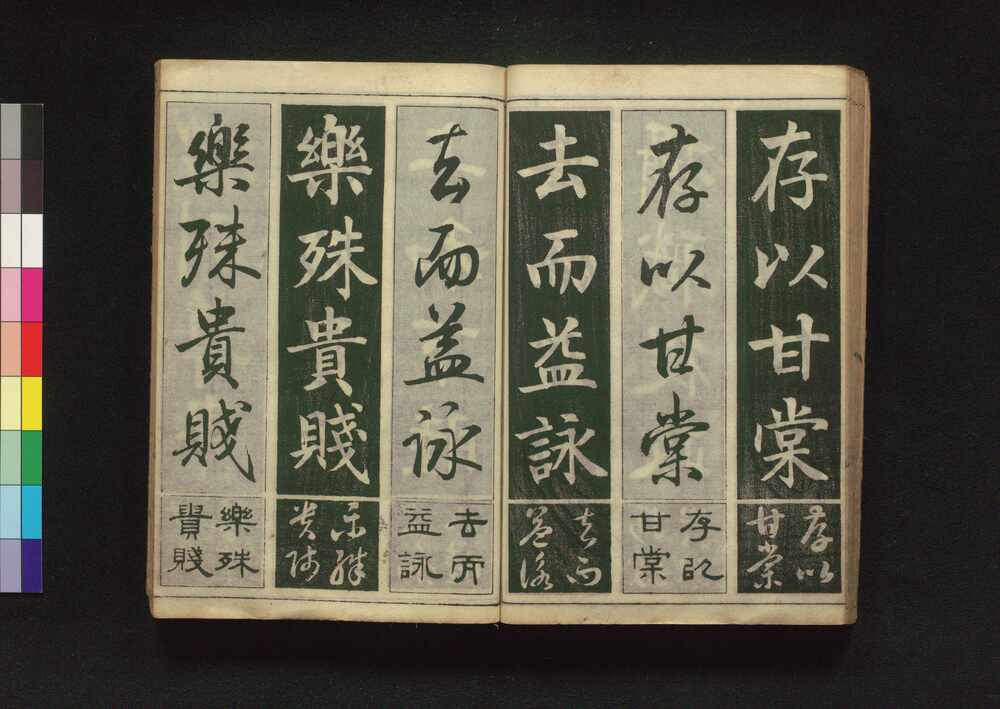 存以甘棠
存以
甘棠
存以甘棠
存以
甘棠
去而益詠
去而
益詠
去而益詠
去而
益詠
樂殊貴賤
樂殊
貴賤
樂殊貴賤
樂殊
貴賤